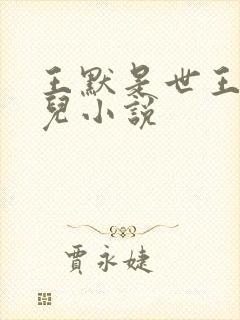 王默是世王
兒小說
賈永婕